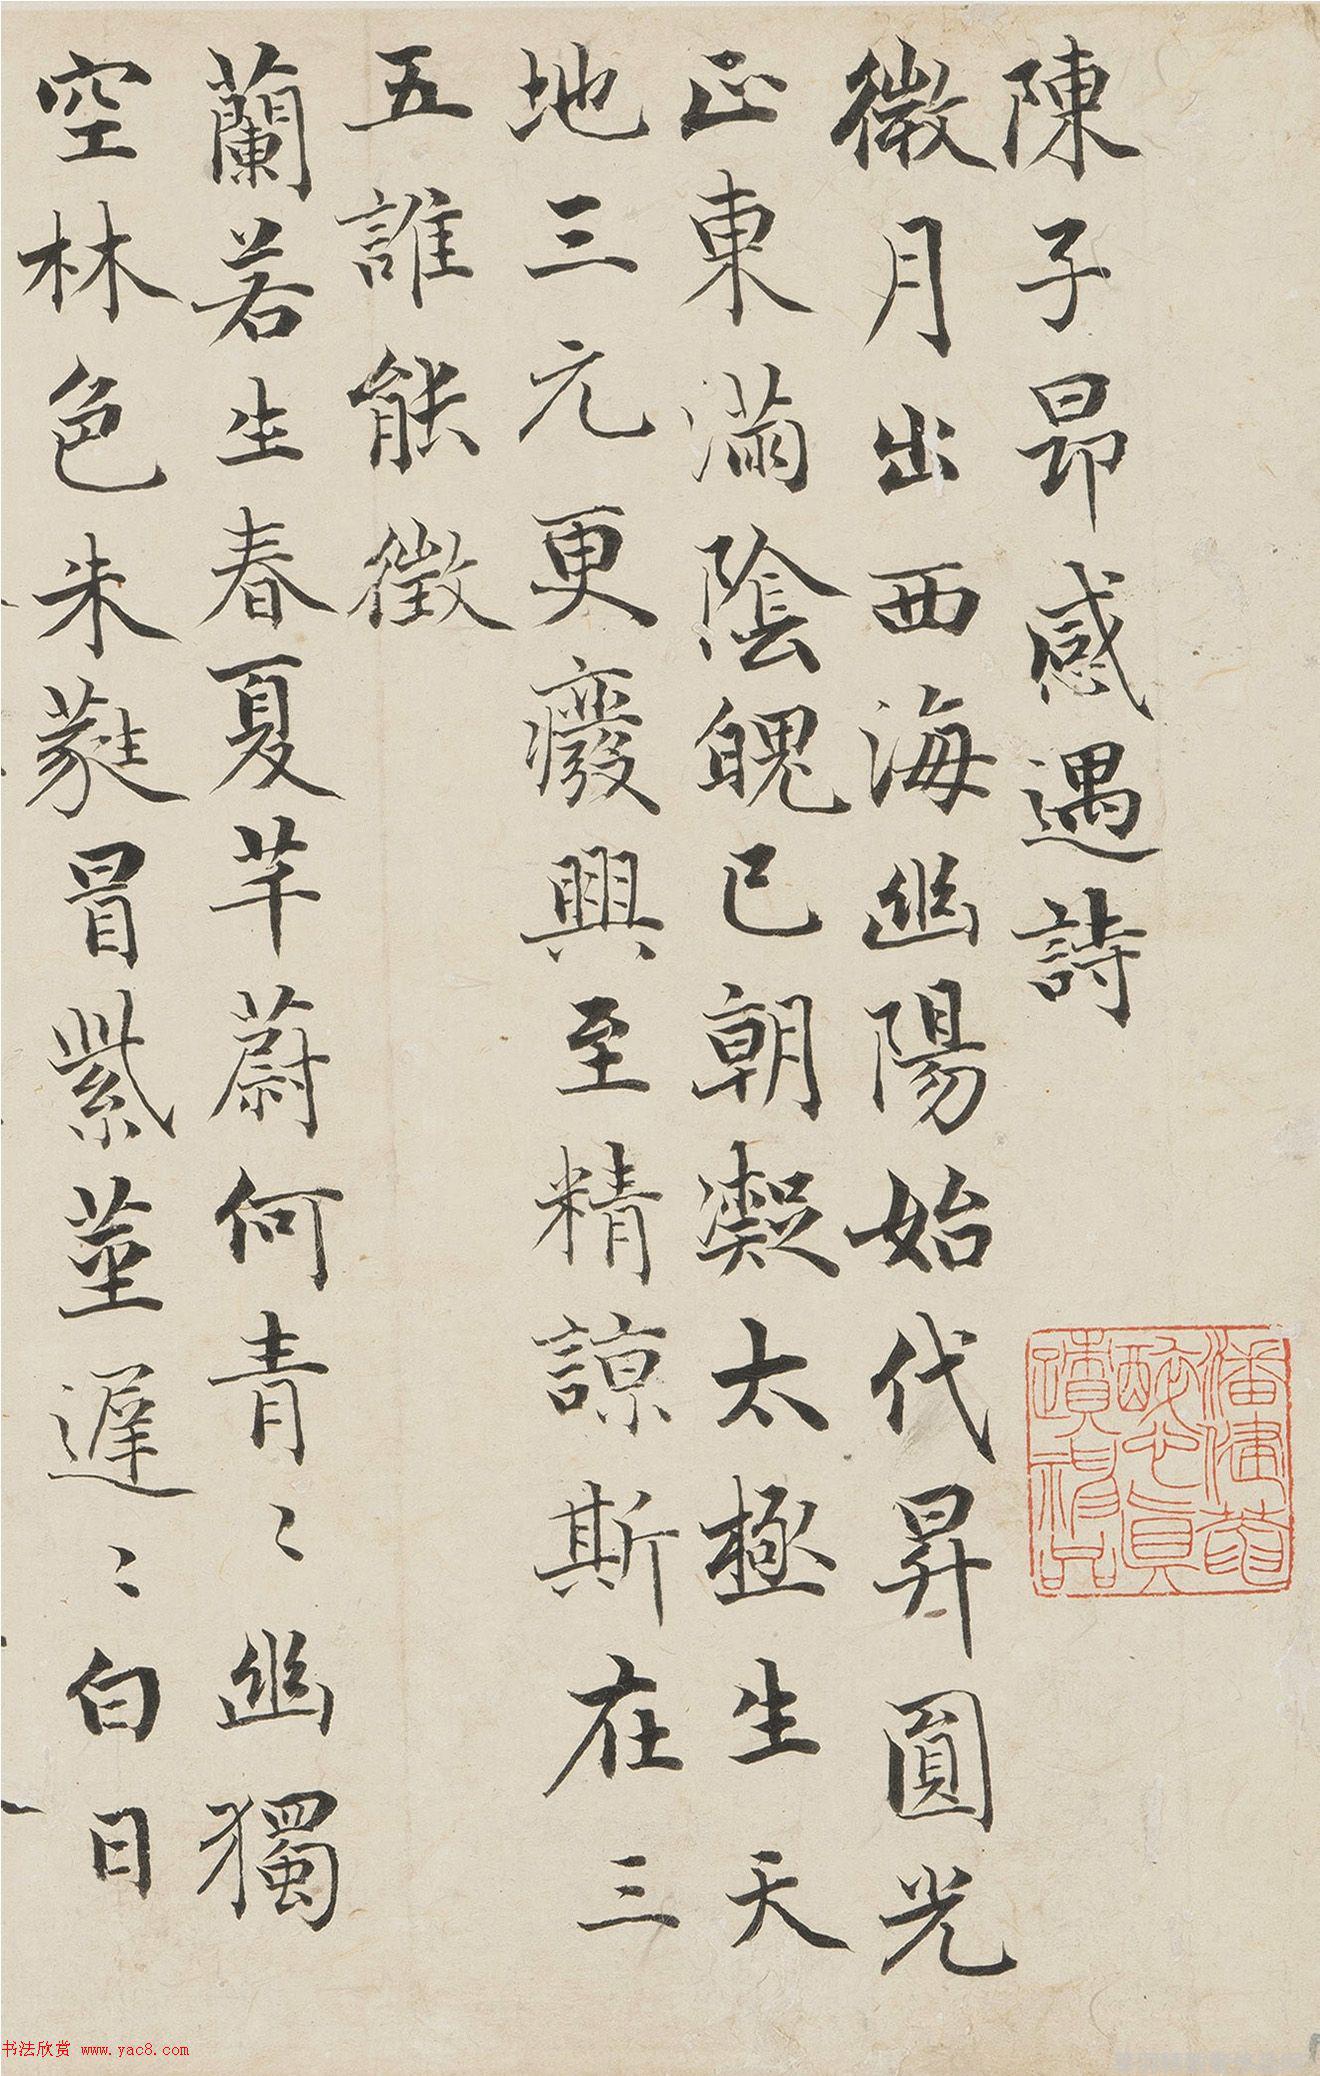 陳子昂感遇詩
微月出西海幽陽始代昇圓光
正東滿陰魄已朝凝太極生天
地三元更癈興至精諒斯在三
五誰能徵
蘭若生春夏芊蔚何青〻幽獨
空林色朱蕤冒紫莖遲〻白日
潘健菴
醉心真
蹟神品
书法欣赏 www.yac8.com